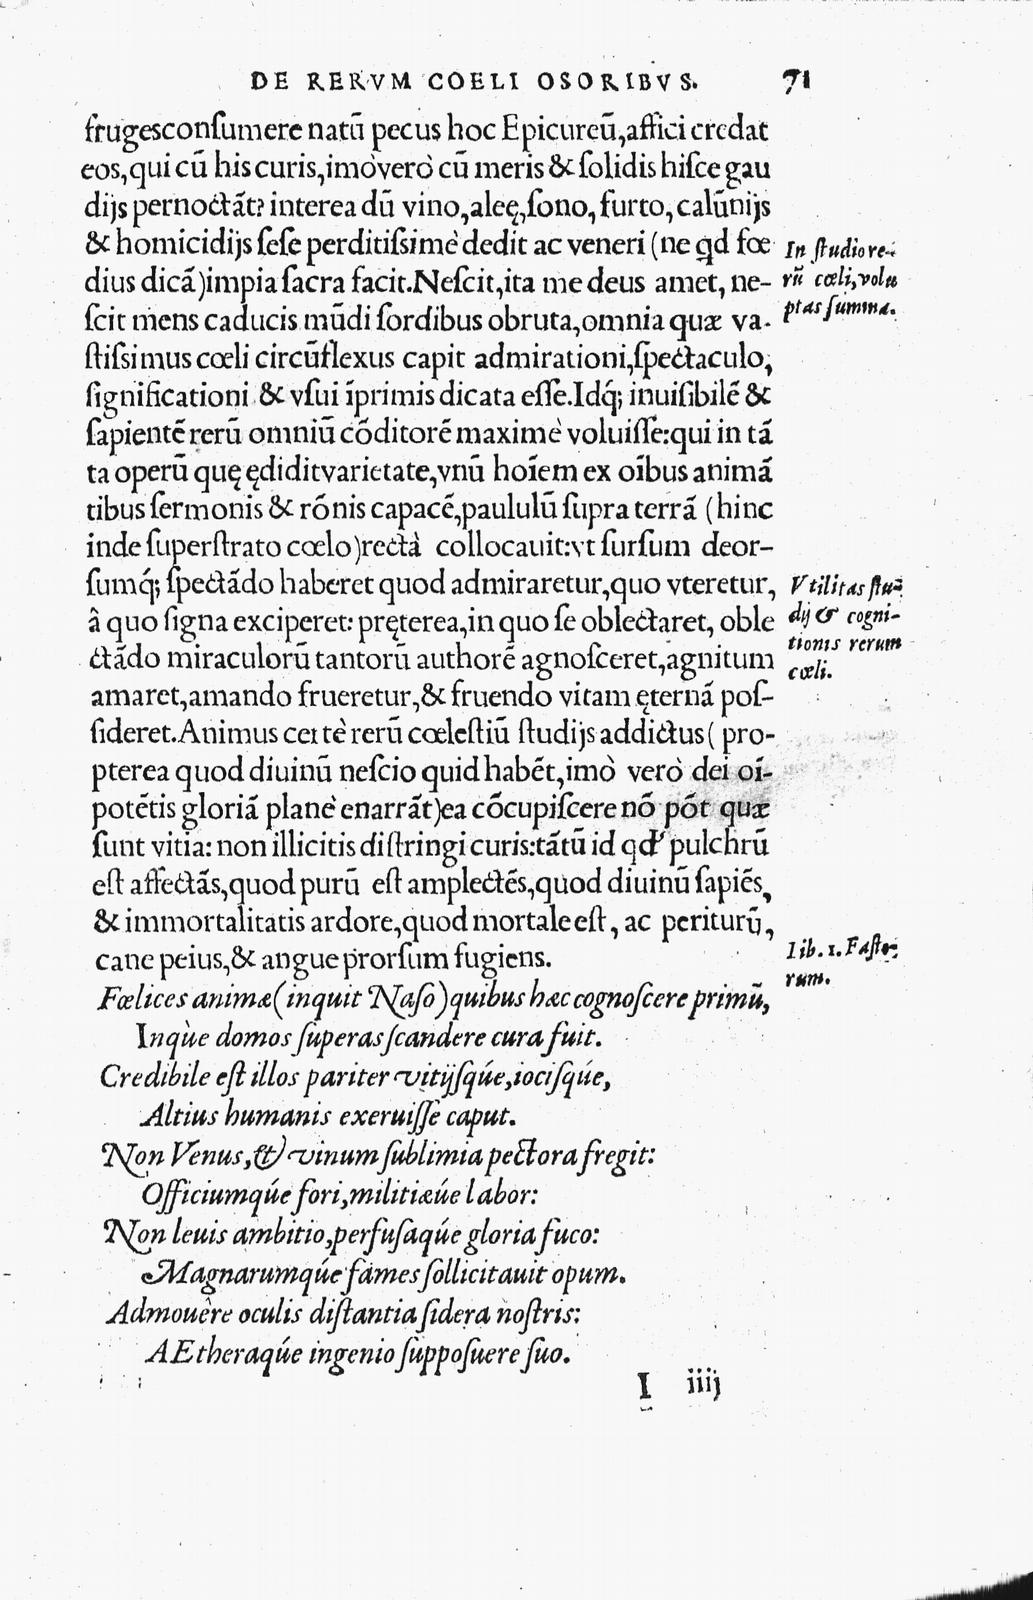 DE RERVM COELI OSORIBVS. 71
frugesconſumere natū pecus hoc Epicureū,affici credat
eos,qui cū his curis,imòverò cū meris & ſolidis hiſce gau
dijs pernoctāt? interea dū vino,aleę,ſono, furto, calūnijs
& homicidijs ſeſe perditiſsimè dedit ac veneri (ne qd fœ
dius dicā)impia ſacra facit.Neſcit,ita me deus amet, ne-
ſcit mens caducis mūdi ſordibus obruta,omnia quæ va-
ſtiſsimus cœli circūflexus capit admirationi,ſpectaculo,
ſignificationi & vſui īprimis dicata eſſe.Idq́; inuiſibilē &
ſapientē rerū omniū cōditorē maximè voluiſſe:qui in tā
ta operū quę ędiditvarietate,vnū hoīem ex oībus animā
tibus ſermonis & rōnis capacē,paululū ſupra terrā (hinc
inde ſuperſtrato cœlo)rectà collocauit:vt ſurſum deor-
ſumq́; ſpectādo haberet quod admiraretur,quo vteretur,
â quo ſigna exciperet: pręterea,in quo ſe oblectaret, oble
ctādo miraculorū tantorū authorē agnoſceret,agnitum
amaret,amando frueretur,& fruendo vitam ęternā poſ-
ſideret.Animus certè rerū cœleſtiū ſtudijs addictus( pro-
pterea quod diuinū neſcio quid habēt,imò verò dei oī-
potētis gloriā planè enarrāt)ea cōcupiſcere nō pōt quæ
ſunt vitia: non illicitis diſtringi curis:tātū id qd pulchrū
eſt affectās,quod purū eſt amplectēs,quod diuinū ſapiēs,
& immortalitatis ardore,quod mortale eſt, ac periturū,
cane peius,& angue prorſum fugiens.
Fœlices animæ(inquit Naſo)quibus hæc cognoſcere primū,
Inquè domos ſuperas ſcandere cura fuit.
Credibile eſt illos pariter vitijſqúe,iociſqúe,
Altius humanis exeruiſſe caput.
Non Venus,& vinum ſublimia pectora fregit:
Officiumqúe fori,militiæúe labor:
Non leuis ambitio,perfuſaqúe gloria fuco:
Magnarumqúe fames ſollicitauit opum.
Admouêre oculis diſtantia ſidera noſtris:
AEtheraqúe ingenio ſuppoſuere ſuo.
I iiij
In ſtudio re-
rū cœli,volu
ptas ſumma.
Vtilitas ſtu-
dij & cogni-
tionis rerum
cœli.
lib. 1. Faſto-
rum.